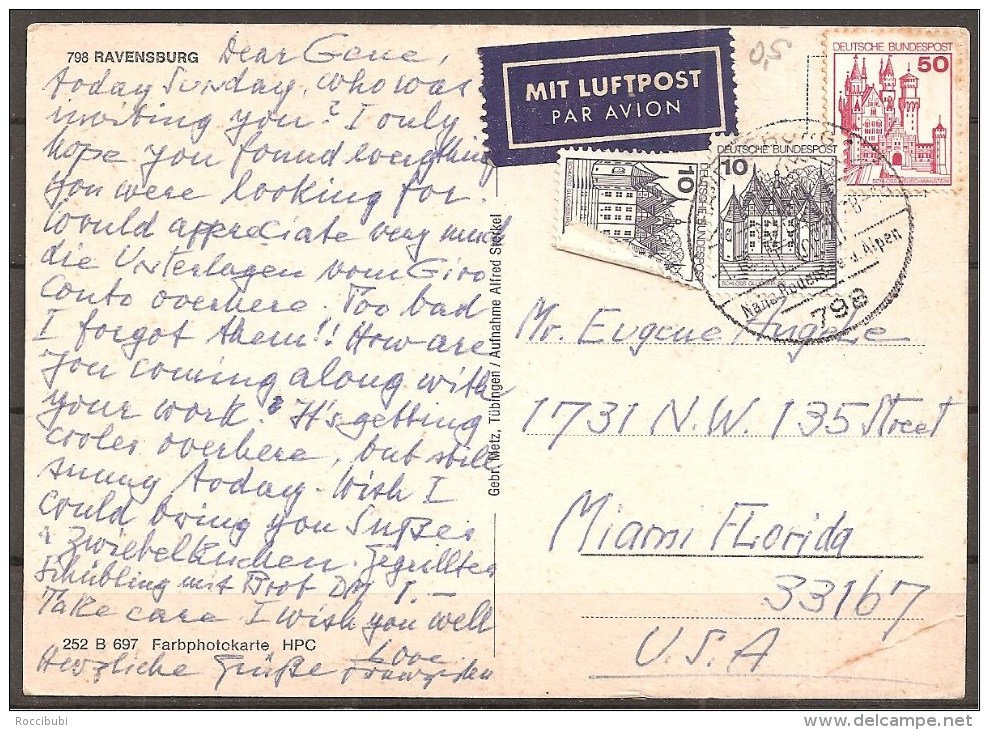 798 RAVENSBURG
Dear Gene,
today Sunday, who was
inviting you? I only
hope you found everything
you were looking for.
Would appreciate very much
die Unterlagen vom Giro
Conto overhere. Too bad
I forgot them!! How are
you coming along with
your work? It's getting
cooler overhere, but still
sunny today - Wish I
could bring you Süßer
Zwiebelkuchen. Gegrillter
Schübling mit Brot DM 1.-
Take care I wish you well
Love
Herzliche Grüße
252 B 697 Farbphotokarte HPC
Gebr. Metz, Tübingen / Aufnahme Alfred Storkel
MIT LUFTPOST
PAR AVION
0,5
DEUTSCHE BUNDESPOST
50
SCHLOSS NEUSCHWANSTEIN
DEUTSCHE BUNDESPOST
10
SCHLOSS GLÜCKSBURG
DEUTSCHE BUNDESPOST
10
Alpen
798
Mr. Eugene Angele
1731 N.W. 135 Street
Miami FLorida
33167
U.S.A
Roccibubi